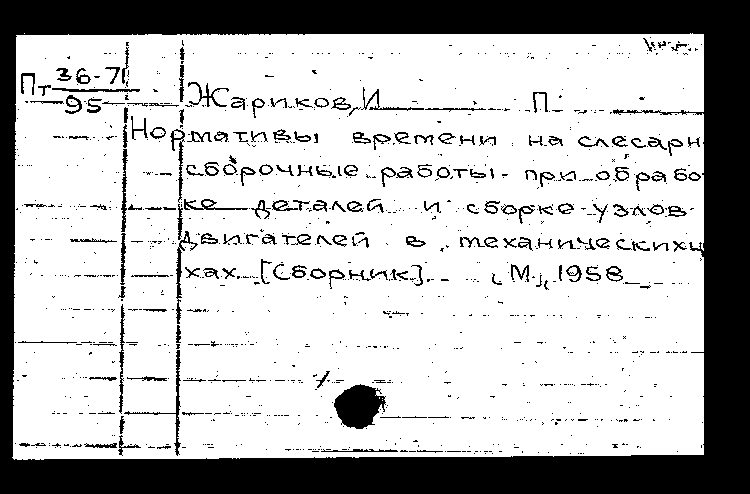 Пт 36-71
95
Жариков, И П
Нормативы времени на слесарн
сборочные работы при обрабо
ке деталей и сборке узлов
двигателей в механическихц
хах. [Сборник]. М., 1958